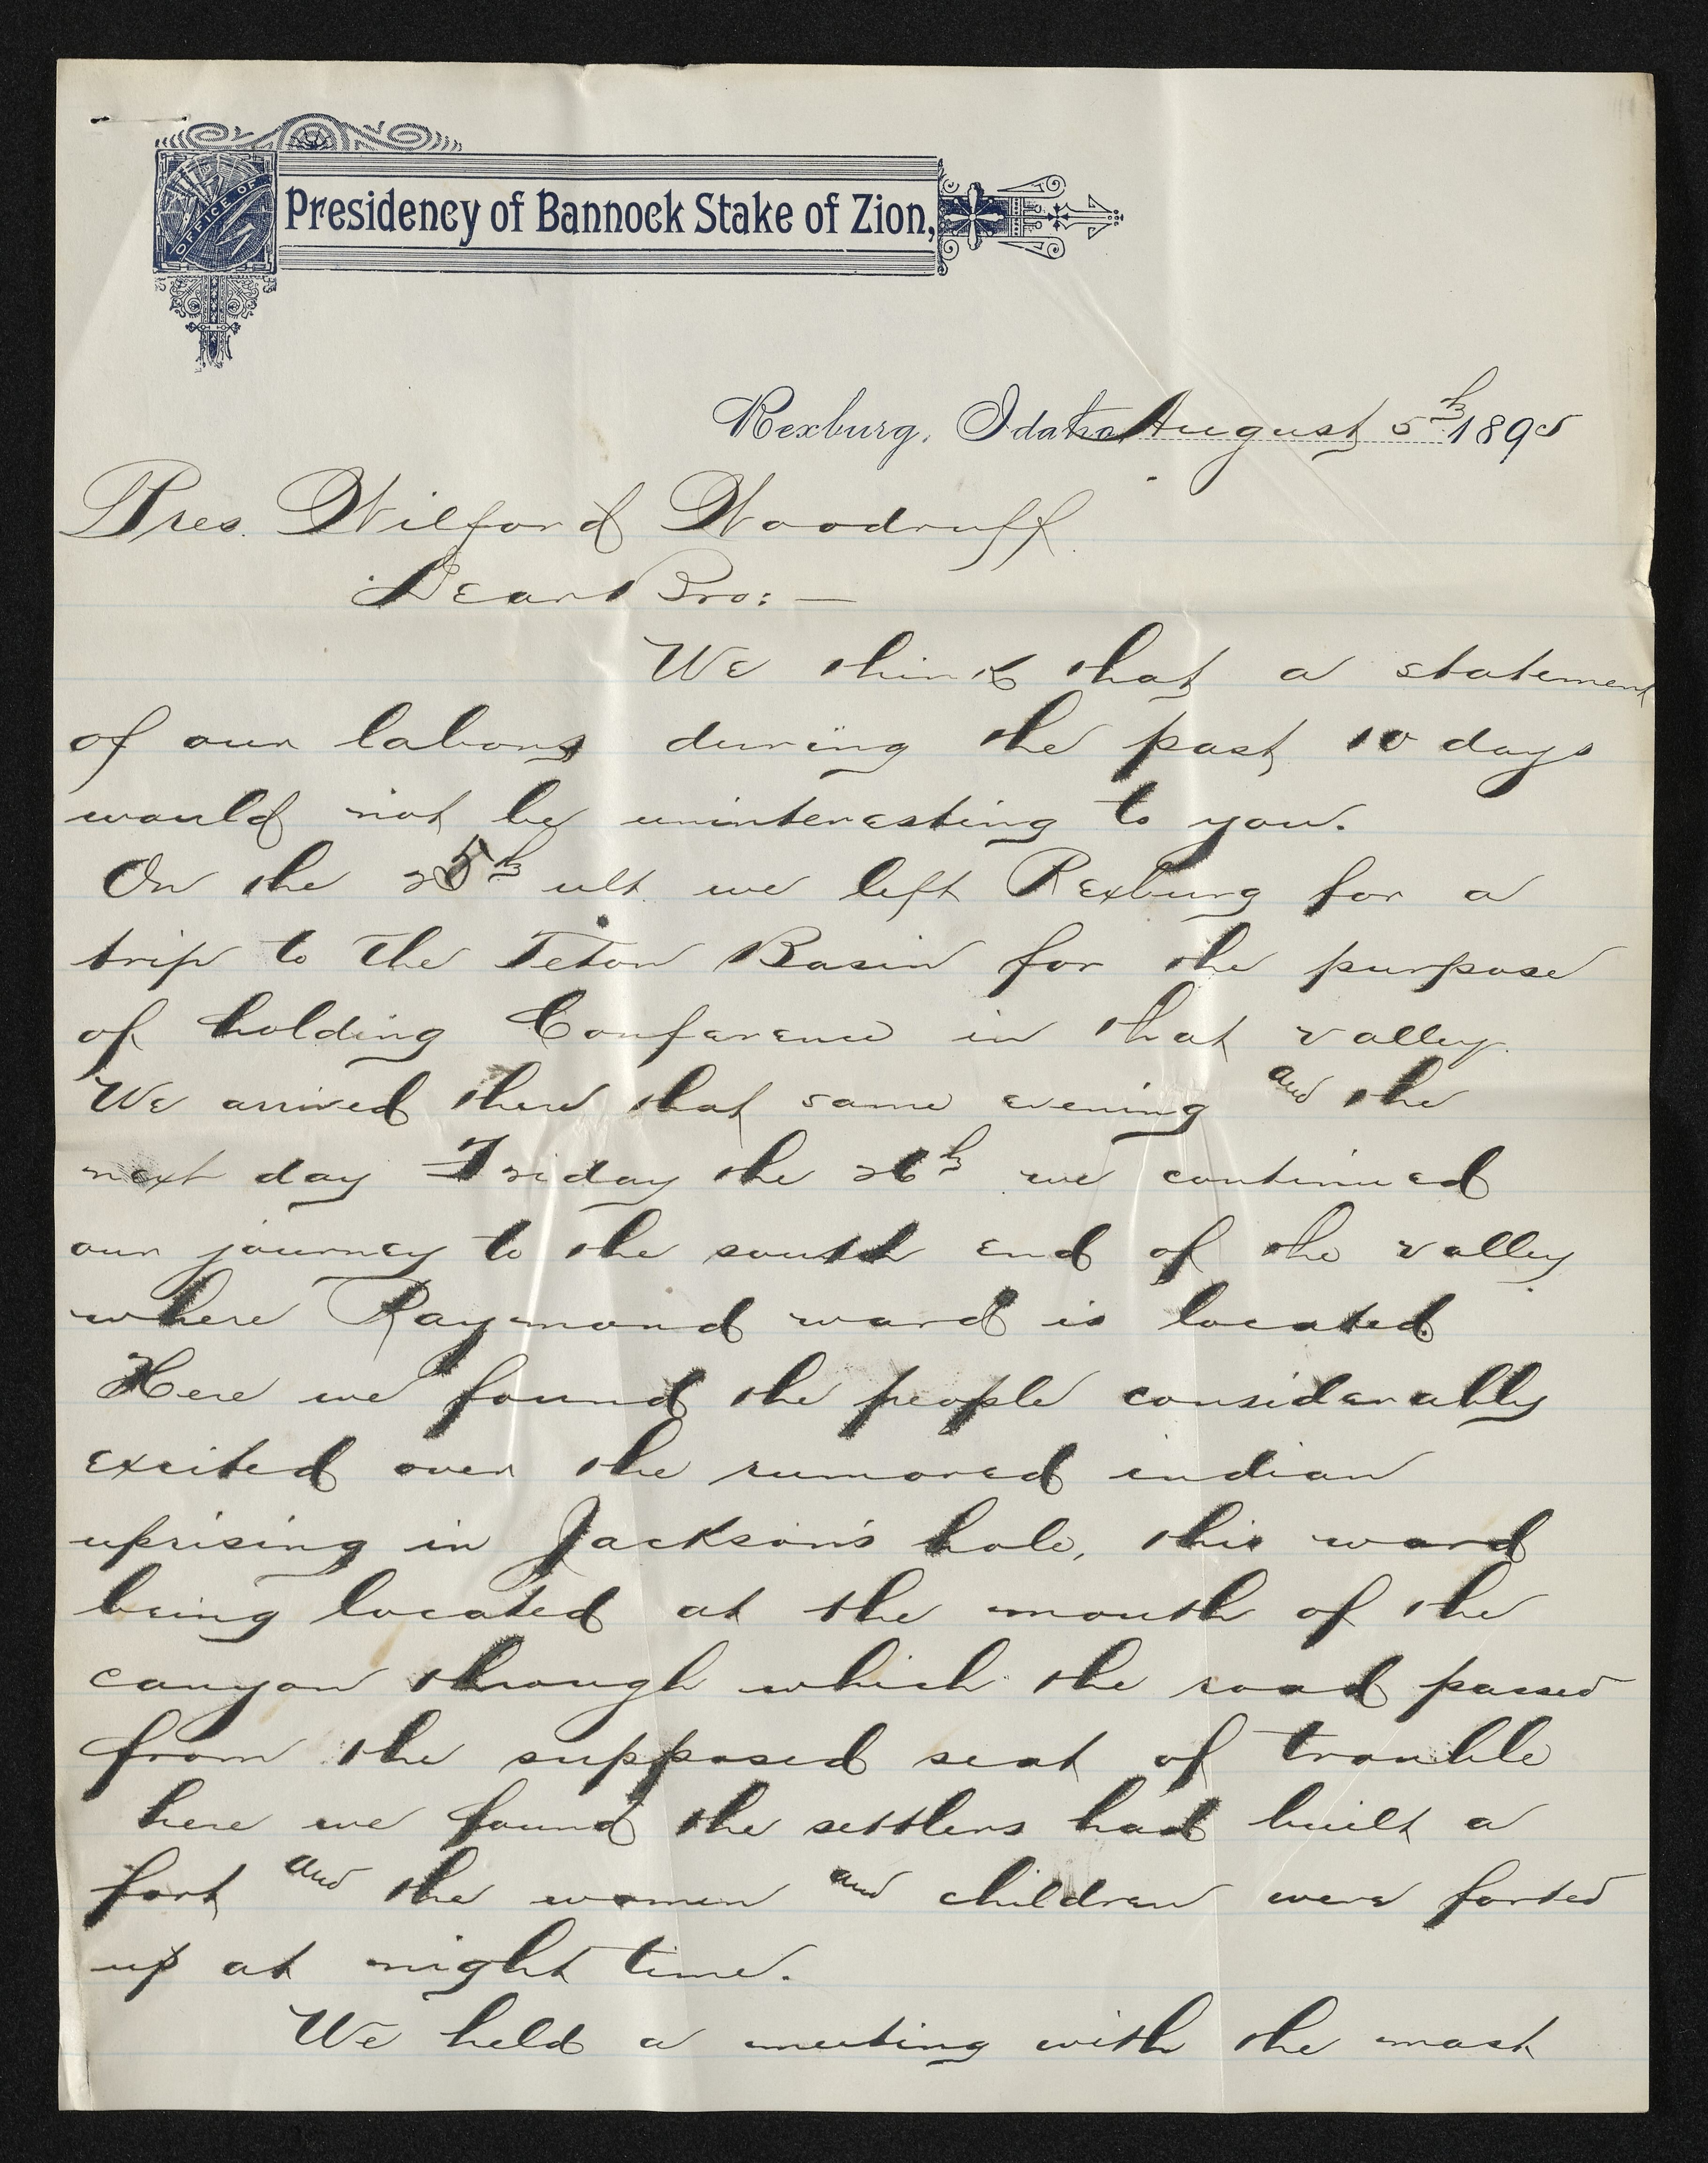 OFFICE OF
Presidency of Bannock Stake of Zion,
Rexburg, Idaho August 5th 1895
Pres. Wilford Woodruff
Dear Bro: —
We think that a statement
of our labors during the past 10 days
would not be uninteresting to you.
On the 25th ult we left Rexburg for a
trip to the Teton Basin for the purpose
of holding Conference in that valley.
We arrived there that same evening and the
next day Friday the 26th we continued
our journey to the south end of the valley
where Raymond ward is located.
Here we found the people considerably
excited over the rumored indian
uprising in Jackson's hole, this ward
being located at the mouth of the
canyon through which the road passed
from the supposed seat of trouble
here we found the settlers had built a
fort and the women and children were forted
up at night time.
We held a meeting with the most